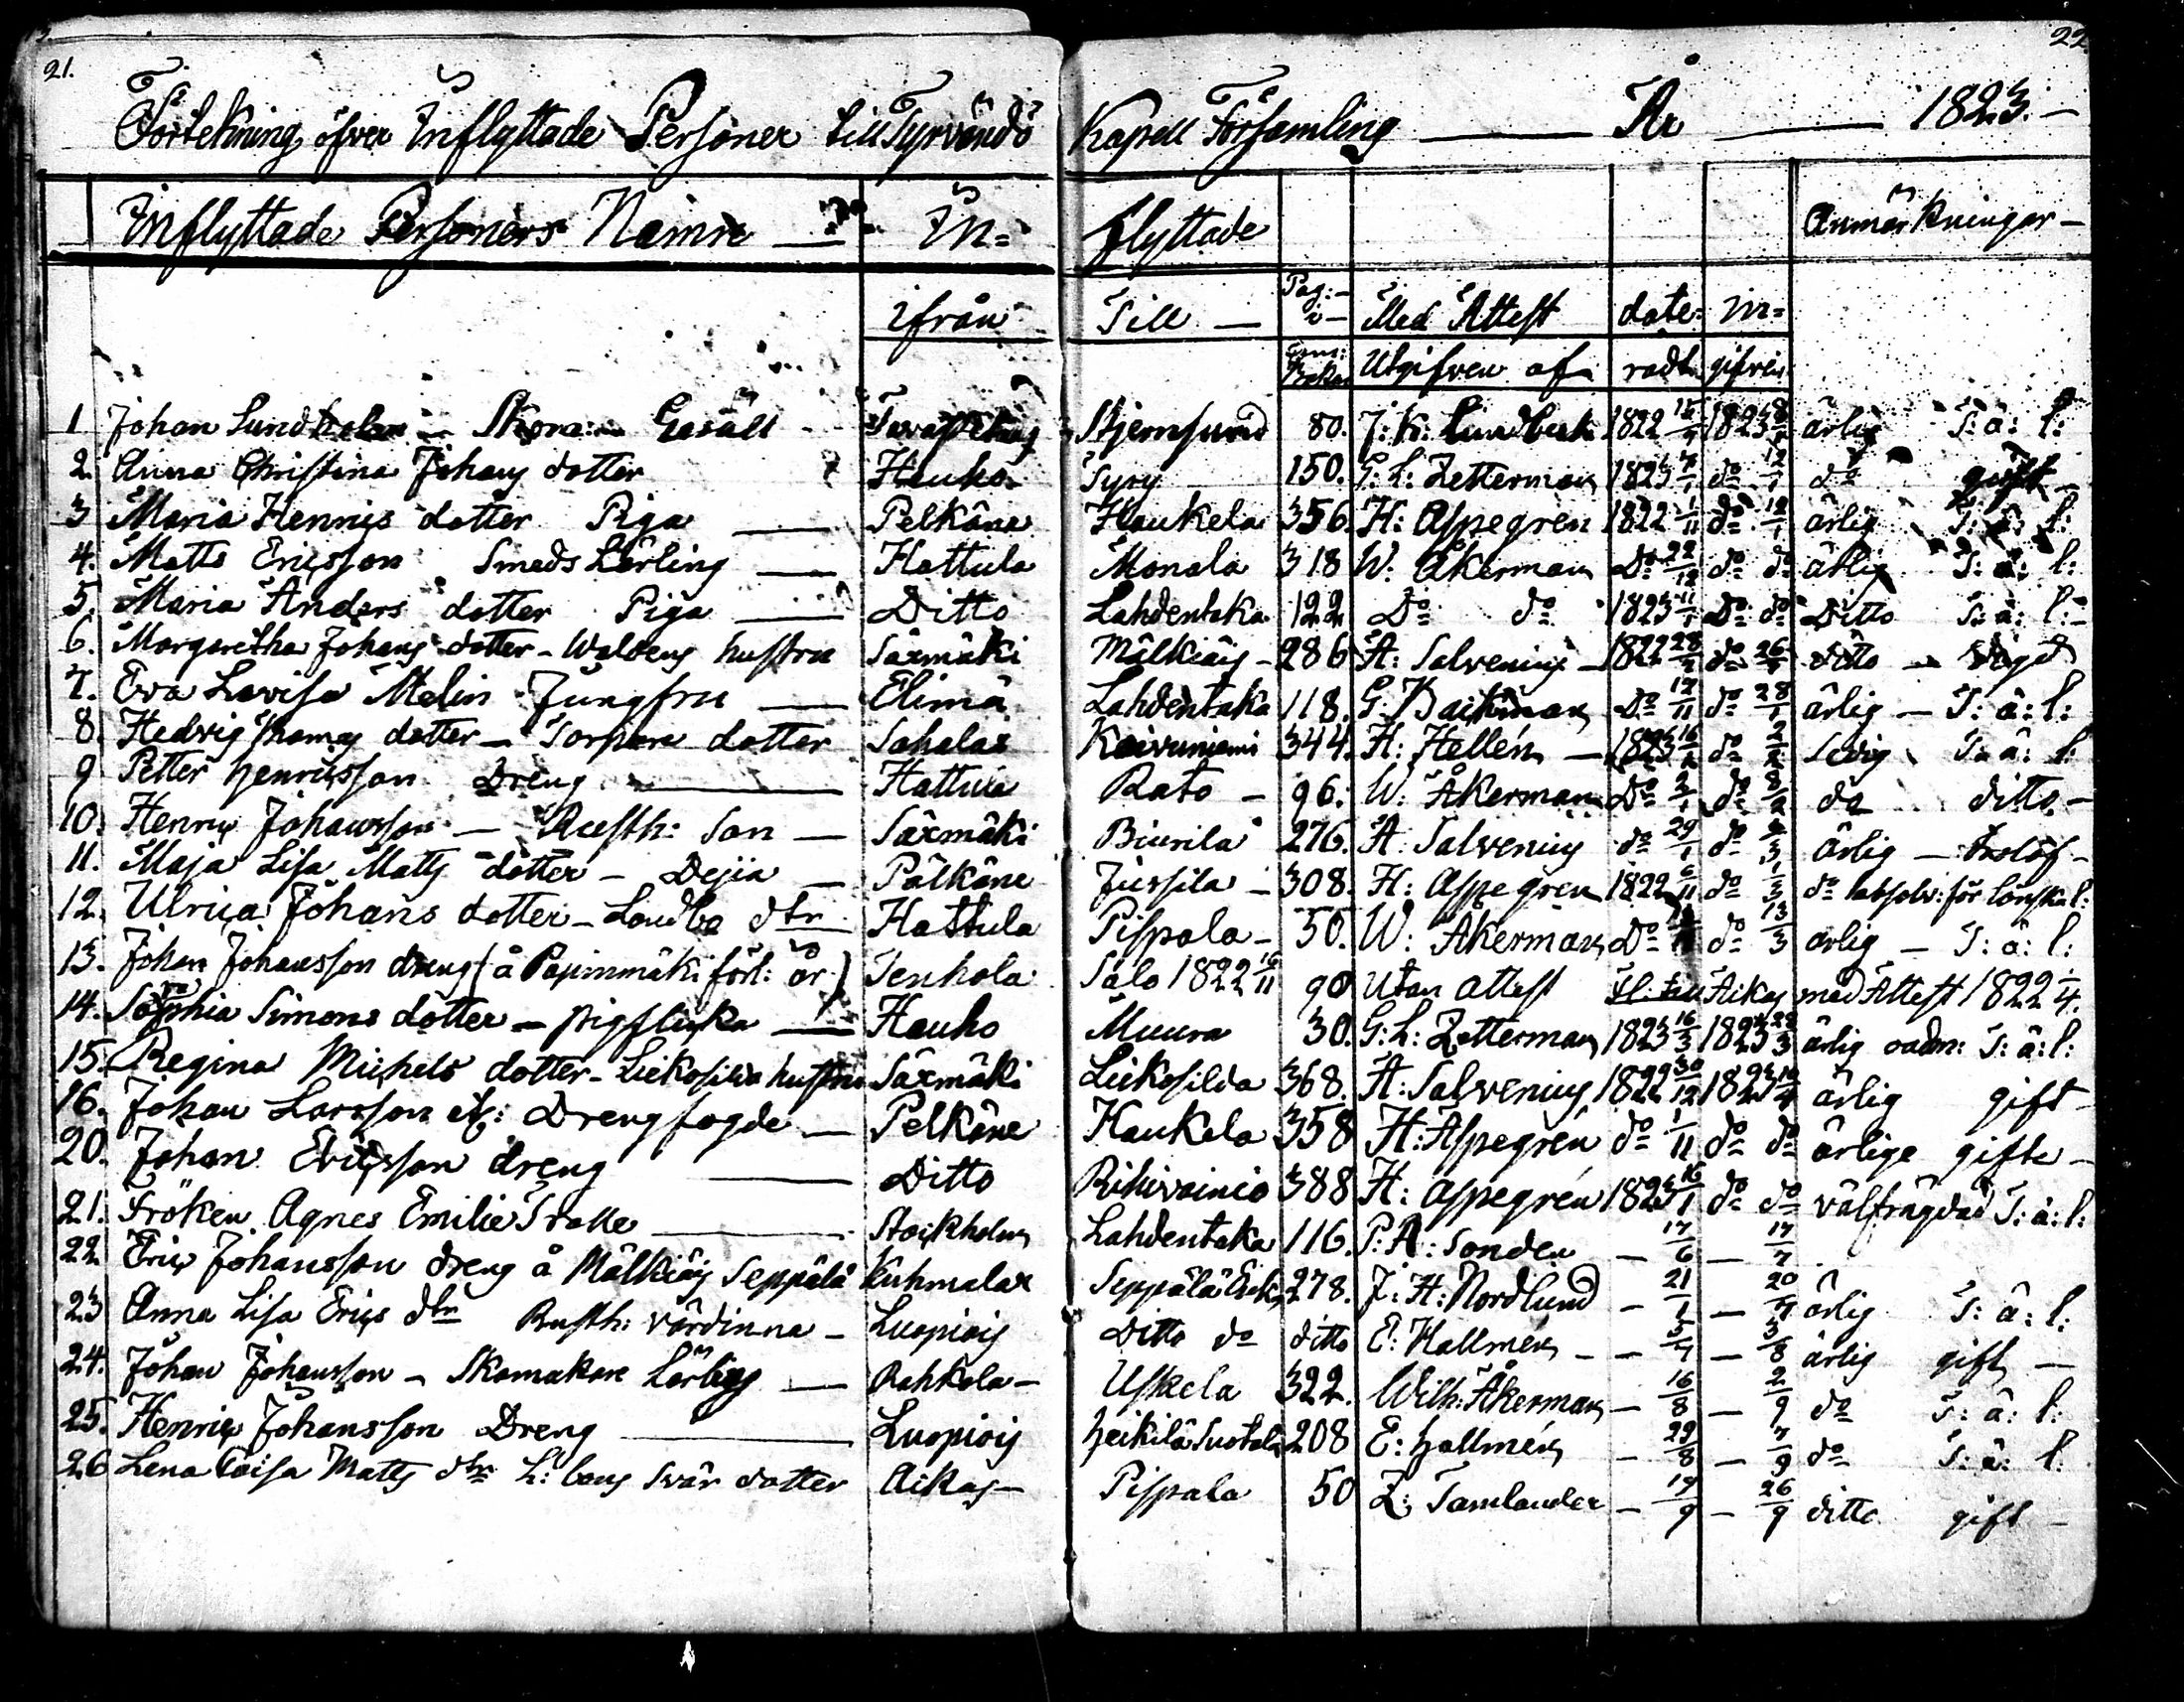 21.
22
Förtekning öfver Inflyttade Personer till Tyrvändö Kapell Församling — År — 1823.—
Inflyttade Personers Namn — In= flyttade Anmärkningar —
ifrån Till — Pag:— i — Med Attest date= in=
Utgifven af radt gifven
1 Johan Skom: Gesäll Stjernsund 80. J: K: Lindbeck 1822 1823 ärlig T: ä: l:
2. Anna Christina Johans dotter Hauho Syry 150. G: L: Zetterman 1823 do 12/1 do gift
3 Maria Henrics dotter Piga — Pelkäne Haukela 356. H: Aspegren 1822 1/11 do 12/1 ärlig T: ä: l:
4. Matts Ericsson Smeds Lärling — Hattula Monala 318 W: Åkerman Do 22/12 do do ärlig T: ä: l:
5. Maria Anders dotter Piga — Ditto Lahdentaka 122 Do do 1823 11/1 Do do Ditto T: ä: l:-
6. Margaretha Johans dotter - Waldens hustru Säxmäki Mälkiäis - 286 A: Salvenius - 1822 do ditto —
7. Eva Lovisa Melin Jungfru — Elimä Lahdentaka 118. G: Backman Do 12/11 do 28/1 ärlig — T: ä: l:
8. Hedvig Thomas dotter — Torpare dotter Sahalax Koivuniemi 344. H: Hellén — 1823 do 2/2 ledig T: ä: l:
9 Petter Henricsson Dreng — Hattula Rato — 96. W: Åkerman Do 2/1 do 8/2 do ditto. —
10. Henric Johansson — Rusth: Son — Säxmäki Biurila 276. A: Salvenius do 29/1 do ärlig —
11. Maja Lisa Matts dotter — Dejia — Pälkäne Jussila — 308. H: Aspegren 1822 6/11 do 1/3 do absolv: för Lönska l:
12. Ulrica Johans dotter - Landbo dtr Hattula Pispala - 50. W: Åkerman Do do 13/3 ärlig — T: ä: l:
13. Johan Johansson dreng (å Papinmäki förl: år) Tenhola Salo 1822 16/11 90 Utan attest Aikas med Attest 1822 1/4.
14. Sophia Simons dotter — pigflicka — Hauho Muura 30. G: L: Zetterman 1823 16/3 1823 28/3 ärlig T: ä: l:
15. Regina Michels dotter - Liekosilda hustru Säxmäki Liekosilda 368. A: Salvenius 1822 30/12 1823 ärlig gift -
16. Johan Larsson Drengfogde — Pelkäne Haukela 358 H: Aspegrén do 1/11 do do ärlige gifte —
20. Johan Ericsson dreng — Ditto Rihivainio 388 H: Aspegrén 1823 16/1 do do välfrägdad T: ä: l:
21. Fröken Agnes Emilie — Stockholm Lahdentaka 116. P: A: Sonden — 17/6 — 17/7
22 Eric Johansson dreng å Mälkiäis Seppälä Kuhmalax Seppälä 278. J: H: Nordlund — 21/1 — 20/7 ärlig T: ä: l:
23 Anna Lisa Erics dtr Rusth: värdinna — Luopiois Ditto do ditto E: Hallmén — 3/7 — 3/8 ärlig gift —
24. Johan Johansson — Skomakare Lärling — Rahkola — Uskela 322. Wilh: Åkerman — 16/8 — 2/9 do T: ä: l:
25. Henric Johansson Dreng — Luopiois Heikilä Suotala 208 E: Hallmén — 29/8 — 7/9 do T: ä: l:
26 Lena Caisa Matts dtr L: bons Svär dotter Aikas — Pispala 50 Z: Tamlander — 19/9 — 26/9 ditto gift —